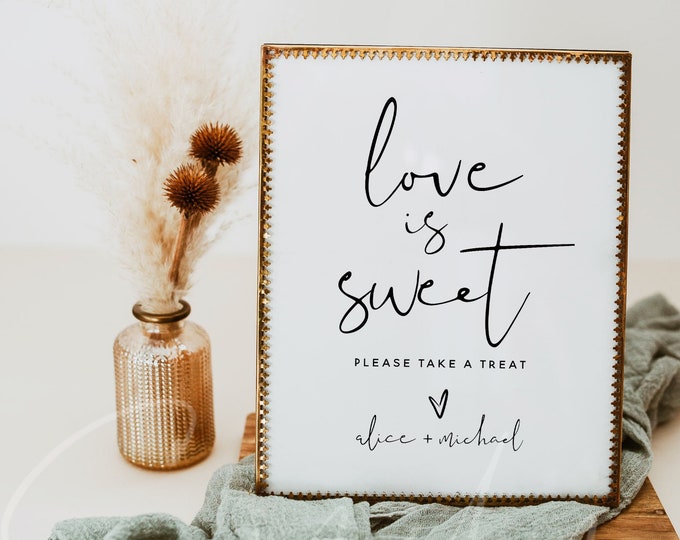 love
is
sweet
PLEASE TAKE A TREAT
alice + michael